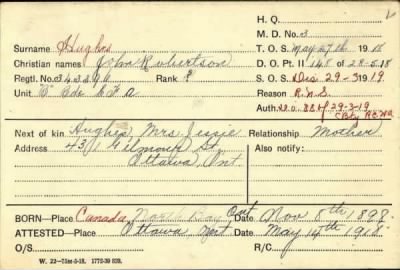 H. Q.
M. D. No. 3
Surname Hughes T. O. S. May 27th 1918
Christian names John Robertson D. O. Pt. 11 148 of 28-5-18
Regtl. No. 343396 Rank Gr S. O. S. Dis 29-3 1919
Unit "B" Bde C.F.A. Reason R.N.S.
Auth. D.O. 88 of 29-3-19
Next of kin Hughes, Mrs. Jessie Relationship Mother
Address 431 Gilmour St. Also notify:
Ottawa, Ont
BORN—Place Canada, North Bay Ont Date Nov 8th 1898
ATTESTED—Place Ottawa, Ont Date May 14th 1918
O/S R/C
W. 22—75m-5-18. 1772-39 839.